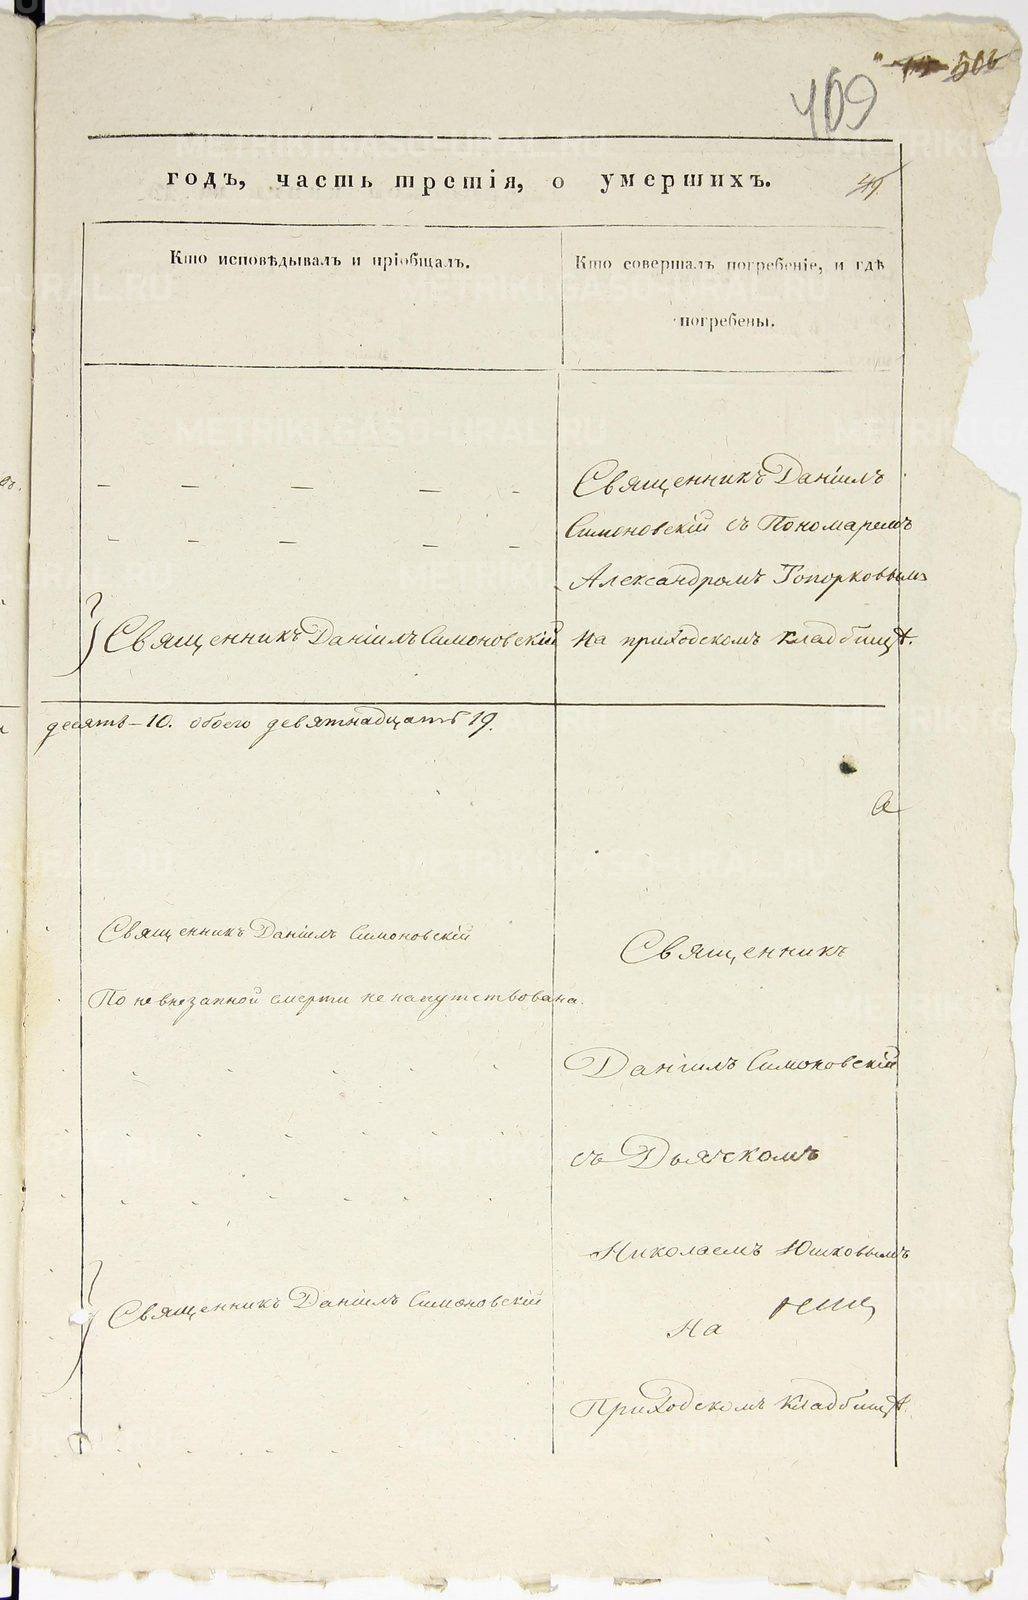 506
409
годъ, часть третія, о умершихъ.
49.
Кто исповѣдывалъ и пріобщалъ.
Кто совершалъ погребеніе, и гдѣ
погребены.
Священникъ Даніилъ
Симоновскій съ Пономаремъ
Александромъ Топорковымъ
Священникъ Даніилъ Симоновскій
на приходскомъ кладбищѣ.
десять – 10. обоего девятнадцать 19.
Священникъ Даніилъ Симоновскій
Священникъ
По невнезапной смерти не напутствована.
Даніилъ Симоновскій
съ Дьячкомъ
Николаемъ Юшковымъ
Священникъ Даніилъ Симоновскій
на
Приходскомъ кладбищѣ.
METRIKI.GASO-URAL.RU